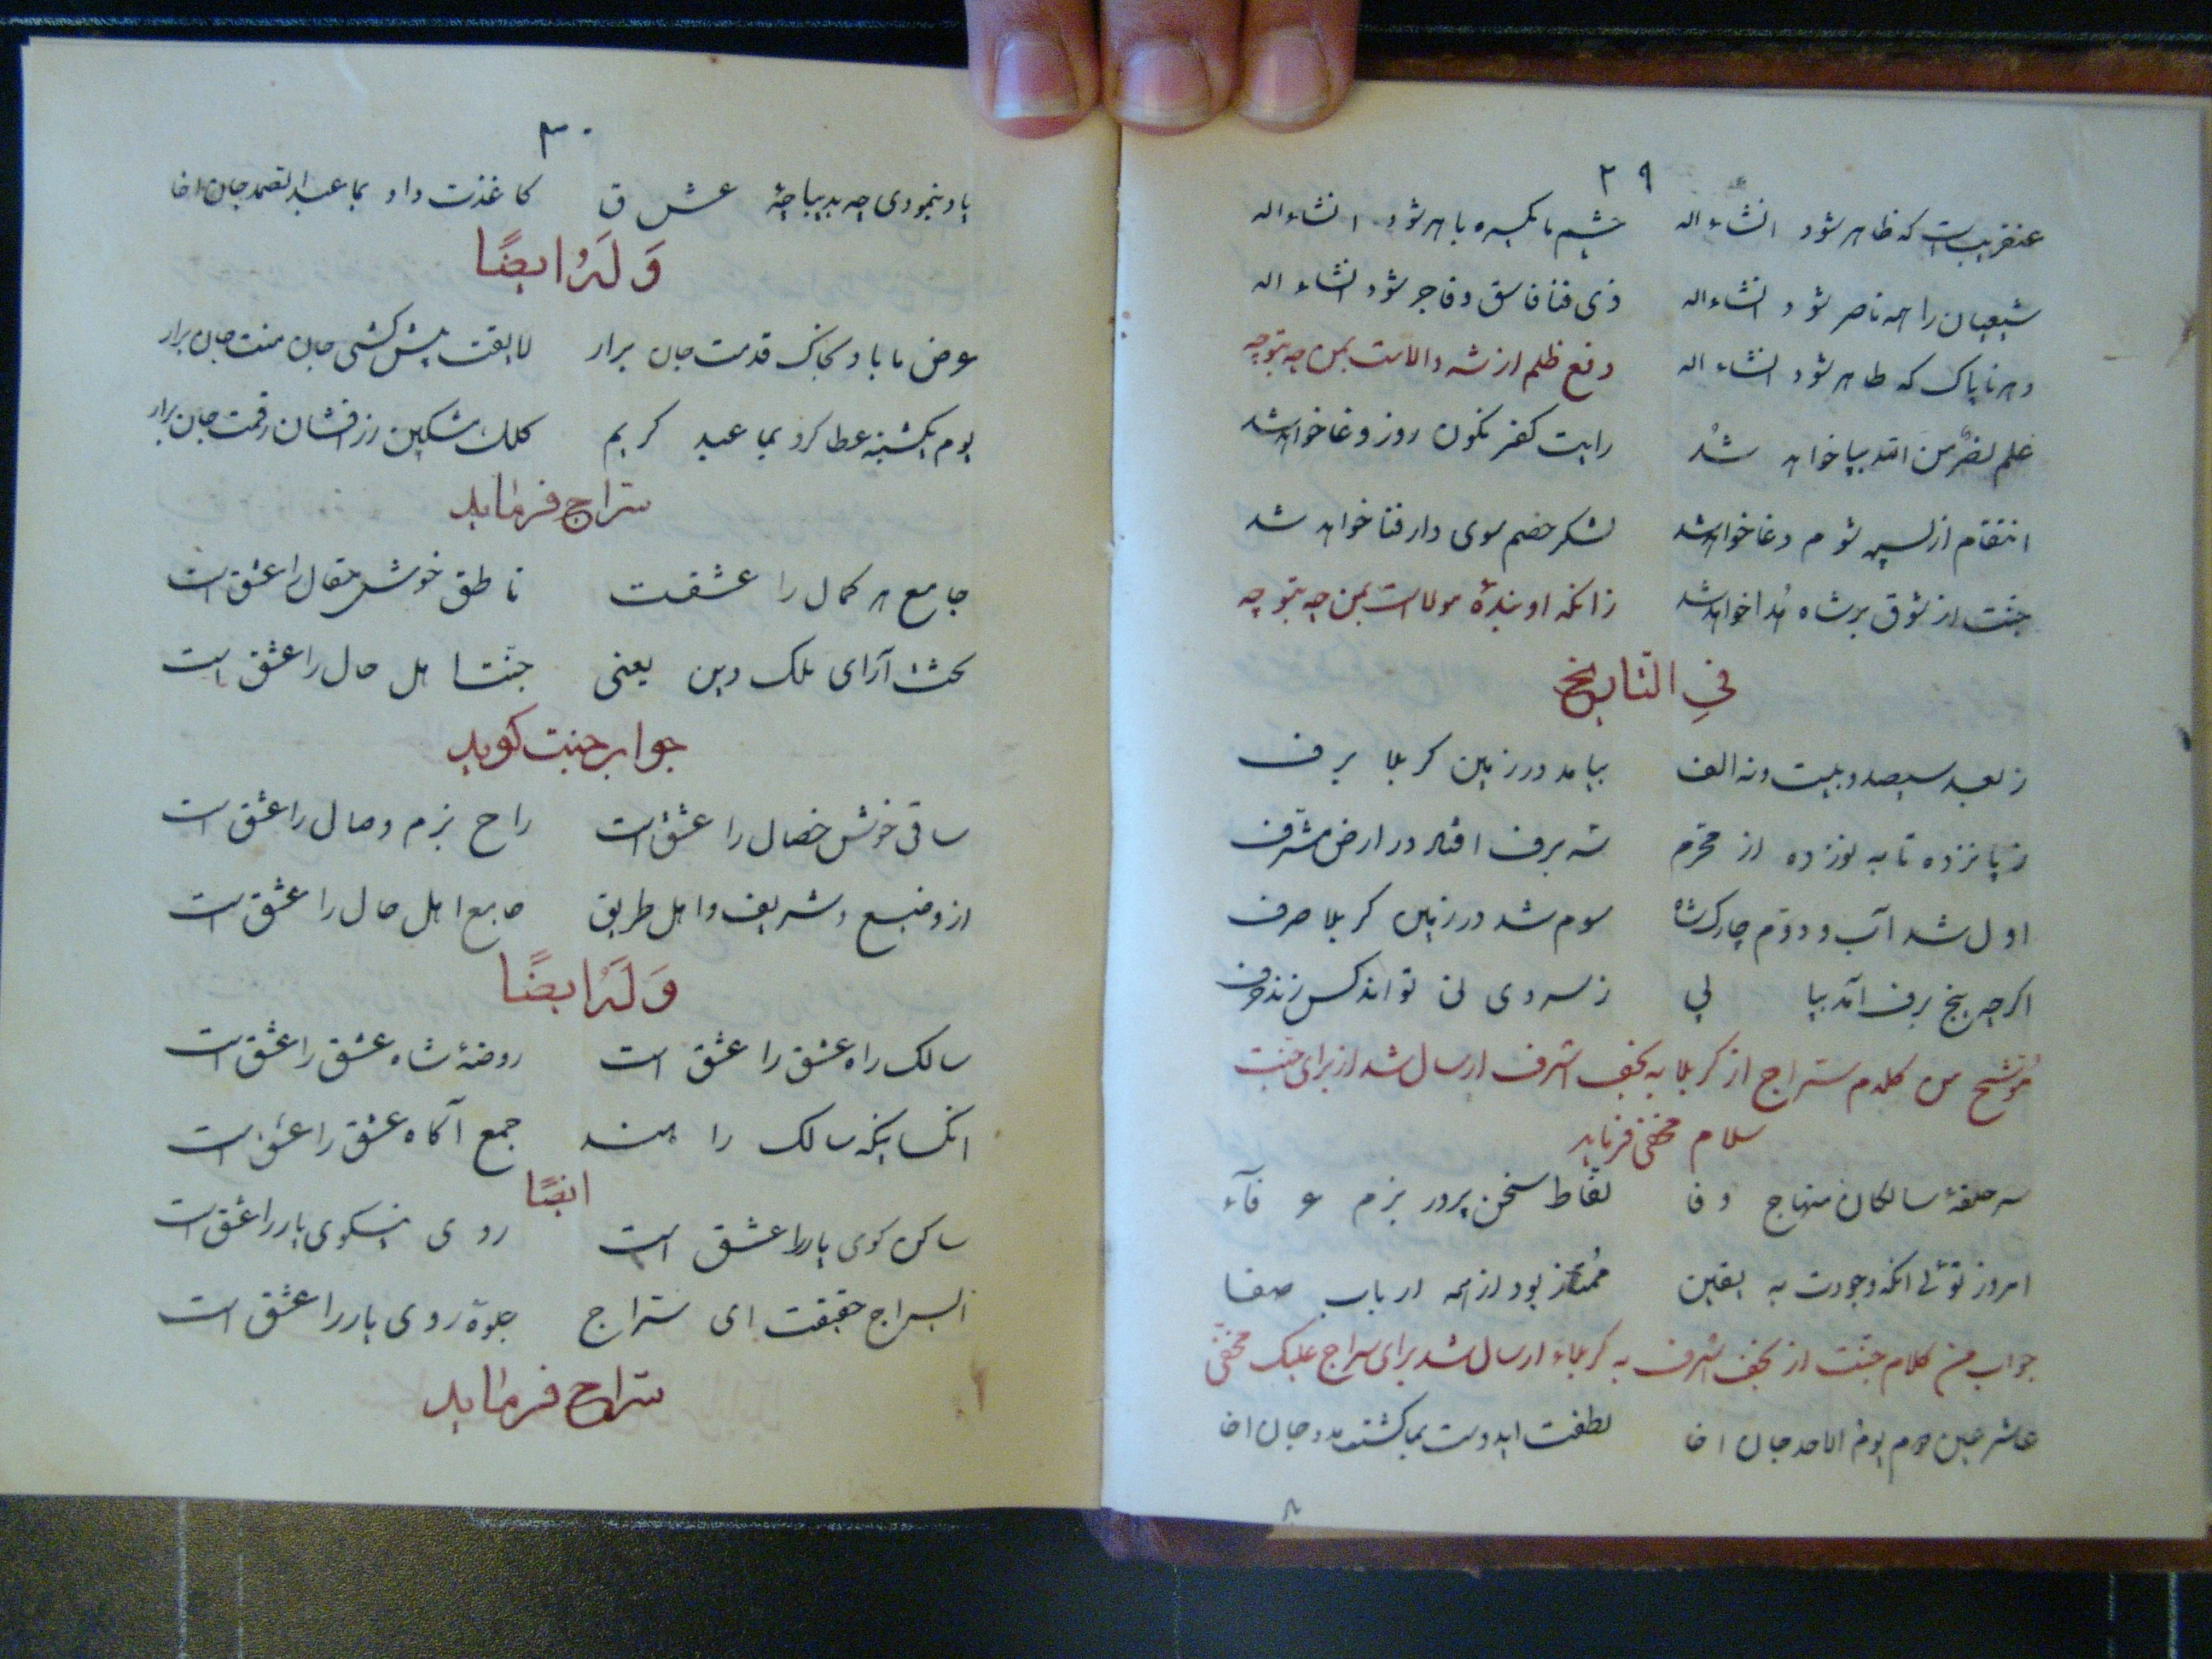 ۲۹
عنقریبست که ظاهر شود انشاءاله چشم ما یکسره باهر شود انشاءاله
شیعیان را همه ناصر شود انشاءاله ذی فنا فاسق و فاجر شود انشاءاله
دهر ناپاک که طاهر شود انشاءاله دفع ظلم از شه والاست بمن چه بتوچه
علم نصر من الله بپا خواهد شد رایت کفر نگون روز وغا خواهد شد
انتقام از شوم دغا خواهد شد لشکر خصم سوی دار فنا خواهد شد
جنت از شوق بر شاه هدا خواهد شد زانکه او بندهٔ مولاست بمن چه بتوچه
في التاریخ
ز بعد سیصد و بیست و نه الف بیامد در زمین کربلا برف
ز پانزده تا به نوزده از محرم سه برف افتاد در ارض مشرف
اول شد آب و دوم سوم شد در زمین کربلا صرف
اگرچه یخ برف آمد بپا پی ز سردی نی تواند کس زند حرف
موشح من کلام سراج از کربلا به نجف اشرف ارسال شد از برای جنت
سلام مخفی فرماید
سر حلقهٔ سالکان منهاج وفا نقاط سخن پرور بزم عرفآء
امروز توئی انکه وجودت به یقین ممتاز بود از همه ارباب صفا
جواب من کلام جنت از نجف اشرف به کربلاء ارسال شد برای سراج علیک مخفی
عاشر عین دوم یوم الاحد جان اخا لطفت ایدوست بما گشت مدد جان اخا
۳۰
یاد بنمودی چه بدیباچهٔ عشق کاغذت داد بما عبدالصمد جان اخا
وَلَهُ ایضًا
عوض ما باد بخاک قدمت جان برار لایقت پیش کشی جان منت جان برار
یوم یکشنبه عطا کرد بما عبد کریم کلک مشکین زرافشان رقمت جان برار
سراج فرماید
جامع هر کمال را عشقست ناطق خوش مقال را عشق است
بحث آرای ملک دین یعنی جنتا اهل حال را عشق است
جواب جنت گوید
ساقی خوش خصال را عشق است راح بزم وصال را عشق است
از وضیع و شریف و اهل طریق جامع اهل حال را عشق است
وَلَهُ ایضًا
سالک راه عشق را عشق است روضهٔ شاه عشق را عشق است
انکسانیکه سالک راهند جمع آگاه عشق را عشق است
ایضًا
ساکن کوی یار را عشق است روی نیکوی یار را عشق است
السراج حقیقت ای سراج جلوهٔ روی یار را عشق است
سراج فرماید